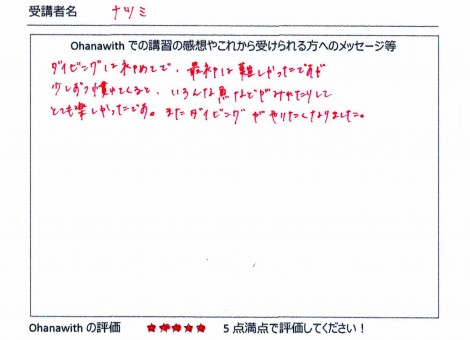 受講者名 ナツミ
Ohanawith での講習の感想やこれから受けられる方へのメッセージ等
ダイビングは初めてで、最初は難しかったですが
少しずつ慣れてくると、いろんな魚などがみれたりして
とても楽しかったです。またダイビングがやりたくなりました。
Ohanawith の評価 ★★★★★ 5点満点で評価してください！